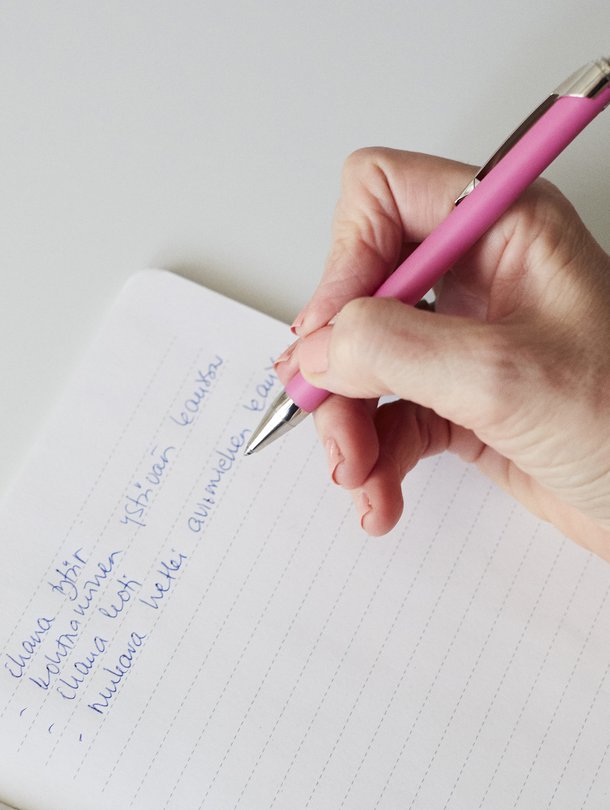 ihana tytär
- kohtaaminen ystävän kanssa
- ihana koti
- mukava hetki aviomiehen